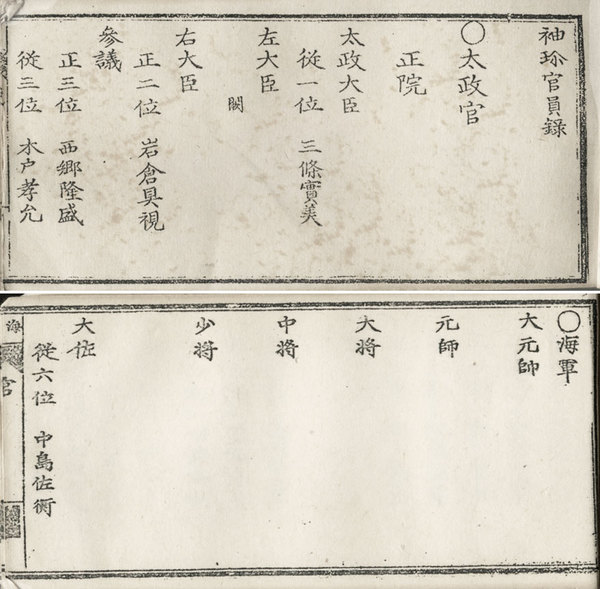 袖珍官員録
〇太政官
正院
太政大臣
從一位 三條實美
左大臣
闕
右大臣
正二位 岩倉具視
參議
正三位 西郷隆盛
從三位 木戸孝允
〇海軍
大元帥
元帥
大将
中将
少将
大佐
從六位 中島佐衡
海
官